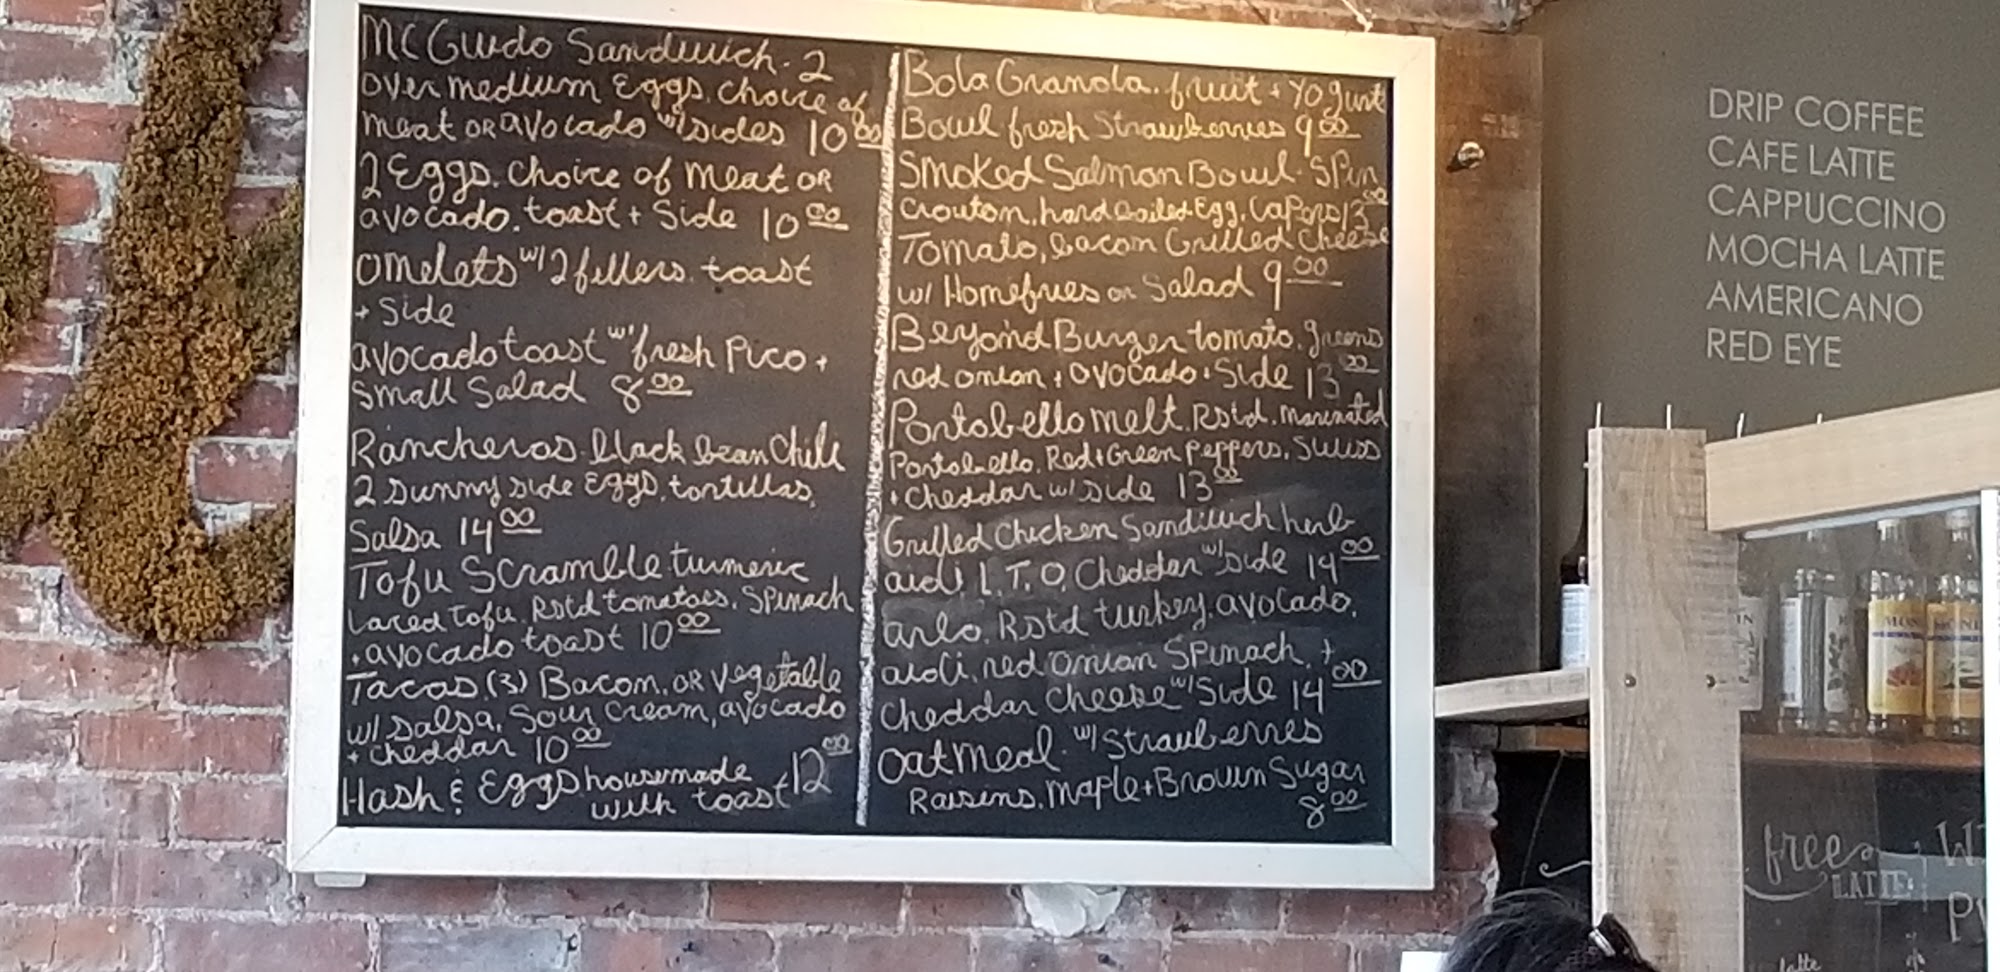 McGuido Sandwich. 2
over medium Eggs. choice of
meat OR avocado w/ sides 10 00
2 Eggs. choice of meat OR
avocado. toast + Side 10 00
omelets w/ 2 fillers. toast
+ Side
avocado toast w/ fresh Pico +
Small Salad 8 00
Rancheros. black bean Chili
2 sunny side Eggs, tortillas,
Salsa 14 00
Tofu Scramble turmeric
laced tofu. Rstd tomatoes. Spinach
+ avocado toast 10 00
Tacos. (3) Bacon. OR vegetable
w/ Salsa, Sour Cream, avocado
+ cheddar 10 00
Hash & Eggs housemade
with toast 12 00
Bola Granola. fruit + Yogurt
Bowl fresh Strawberries 9 00
Smoked Salmon Bowl. Spin
Crouton, hard boiled Egg, Capers 13 00
Tomato, bacon Grilled Cheese
w/ Homefries or Salad 9 00
Beyond Burger tomato. greens
red onion + avocado. Side 13 00
Portobello melt. Rstd. marinated
Portobello. Red + Green Peppers. Swiss
+ Cheddar w/ side 13 00
Grilled Chicken Sandwich herb
aioli, L, T, O, Cheddar w/ side 14 00
arlo. Rstd turkey. avocado.
aioli, red onion Spinach. +
Cheddar Cheese w/ Side 14 00
Oatmeal. w/ Strawberries
Raisins. Maple + Brown Sugar
8 00
DRIP COFFEE
CAFE LATTE
CAPPUCCINO
MOCHA LATTE
AMERICANO
RED EYE
free
LATTE
latte